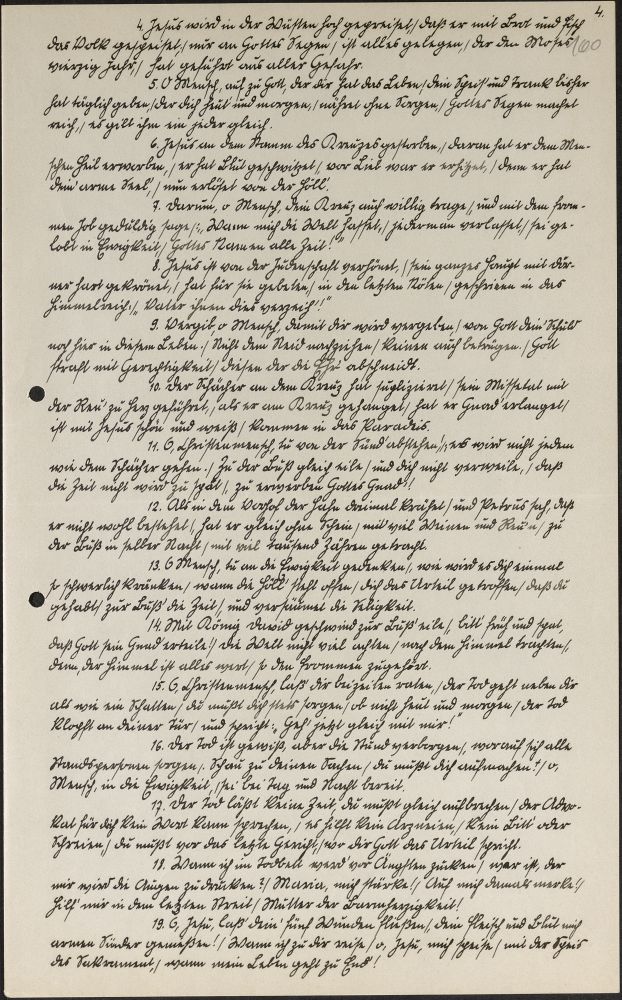 4.
4. Jesus wird in der Wüsten hoch gepreiset,/ daß er mit Brot und Fisch
das Volk gespeiset,/ nur an Gottes Segen,/ ist alles gelegen,/ der den Moses
100
vierzig Jahr,/ hat geführt aus aller Gefahr.
5. O Mensch, auch zu Gott, der dir hat das Leben,/ dein Speis' und Trank bisher
hat täglich geben,/ der dich heut' und morgen,/ nähret ohne Sorgen,/ Gottes Segen machet
reich,/ es gilt ihm ein jeder gleich.
6. Jesus an dem Stamm des Kreuzes gestorben,/ daran hat er dem Men-
schen Heil erworben,/ er hat Blut geschwitzet,/ vor Lieb war er erhitzet,/ denn er hat
dein' arme Seel',/ nun erlöset von der Höll'.
7. Darum, o Mensch, dein Kreuz auch willig trage,/ und mit dem from-
men Job geduldig sage:/ „Wann mich die Welt hasset,/ jederman verlasset,/ sei ge-
lobt in Ewigkeit,/ Gottes Namen alle Zeit!"
8. Jesus ist von der Judenschaft verhönet,/ sein ganzes Haupt mit Dör-
ner hart gekrönet,/ hat für sie gebeten,/ in den letzten Nöten,/ geschrieen in das
Himmelreich:/ „Vater ihnen dies verzeich'!"
9. Vergib, o Mensch, damit dir wird vergeben,/ von Gott dein' Schuld
noch hier in diesem Leben./ Nicht dem Neid nachziehen,/ keinen auch betrügen./ Gott
straft mit Gerechtigkeit,/ diesen der die Ehr' abschneidt.
10. Der Schächer an dem Kreuz hat suplizieret,/ sein Missetat mit
der Reu' zu Herz geführet,/ als er am Kreuz gehanget,/ hat er Gnad' erlanget,/
ist mit Jesus schön und weiß,/ kommen in das Paradeis.
11. O, Christenmensch, tu von der Sünd' abstehen,/ es wird nicht jedem
wie dem Schächer gehen./ Zu der Buß' gleich eile,/ und dich nicht verweile,/ daß
die Zeit nicht wird zu spat,/ zu erwerben Gottes Gnad'!
12. Als in dem Vorhof der Hahn dreimal krähet,/ und Petrus sach, daß
er nicht wohl bestehet,/ hat er gleich ohne Schein,/ mit viel Weinen und Reu'n,/ zu
der Büß in selber Nacht,/ mit viel tausend Zähren getracht.
13. O Mensch, tu an die Ewigkeit gedenken,/ wie wird es dich einmal
so schwerlich kränken,/ wann die Höll' steht offen,/ dich das Urteil getroffen,/ daß du
gehabt,/ zur Buß' die Zeit,/ und versäumet die Seligkeit.
14. Mit König David geschwind zur Buß' eile,/ bitt' früh und spat,
daß Gott sein Gnad' erteile!/ Die Welt nicht viel achten,/ nach dem Himmel trachten,/
denn, der Himmel ist alles wert,/ so den Frommen zugehört.
15. O, Christenmensch, laß' dir beizeiten raten,/ der Tod geht neben dir
als wie ein Schatten,/ du mußt dich stets sorgen,/ ob nicht heut' und morgen,/ der Tod
klopft an deiner Tür,/ und spricht: „Geh' jetzt gleich mit mir!"
16. Der Tod ist gewiß, aber die Stund' verborgen,/ worauf sich alle
Standspersonen sorgen,/ Schau' zu deinen Sachen,/ du mußt dich aufmachen!/ o,
Mensch, in die Ewigkeit,/ sei bei Tag und Nacht bereit.
17. Der Tod läßt keine Zeit, du mußt gleich aufbrechen,/ der Advo-
kat für dich kein Wort kann sprechen,/ es hilft kein Arzneien,/ kein Bitt' oder
Schreien,/ du mußt vor das letzte Gericht,/ wo dir Gott das Urteil spricht.
18. Wann ich im Todbett werd' vor Ängsten zucken,/ wer ist, der
mir wird die Augen zudrucken?/ Maria, mich stärke!/ Auf mich damals merke!/
Hilf' mir in dem letzten Streit,/ Mutter der Barmherzigkeit!
19. O, Jesu, laß' dein' fünf Wunden fließen,/ dein Fleisch und Blut mich
armen Sünder genießen!/ Wann ich zu dir reise,/ o, Jesu, mich speise,/ mit der Speis'
des Sakrament,/ wann mein Leben geht zu End'!